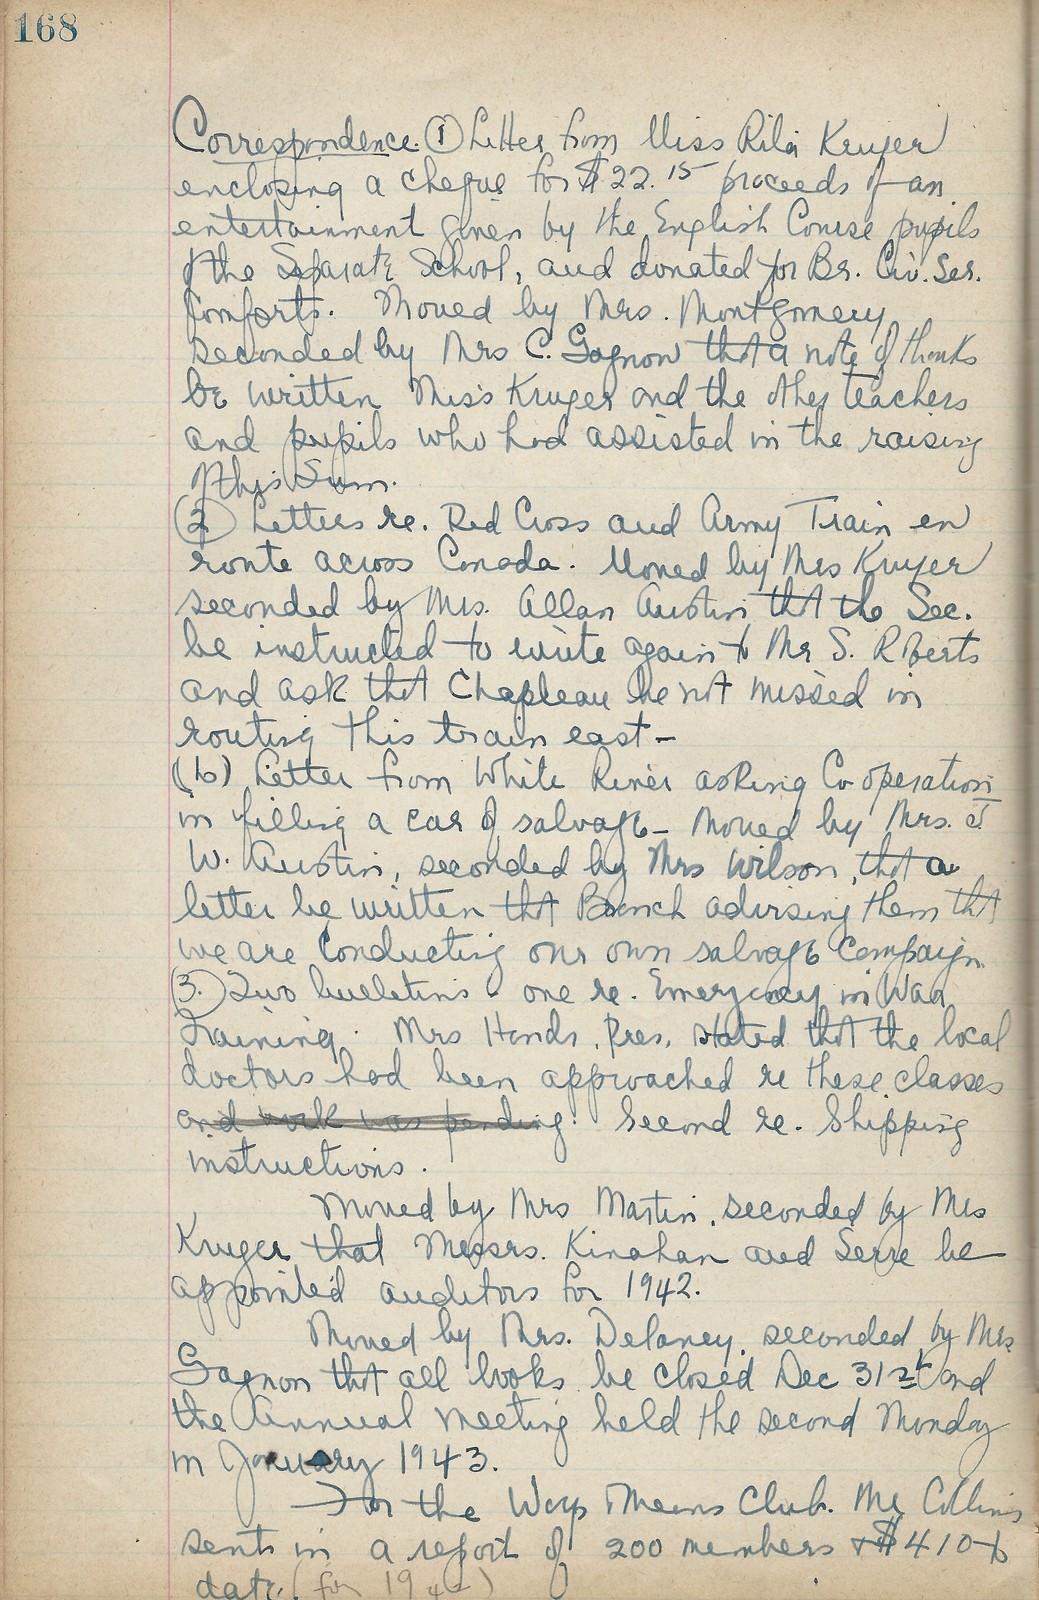 168
Correspondence. (1) Letter from Miss Rila Kruger
enclosing a cheque for $22.15 proceeds of an
entertainment given by the English Course pupils
of the Separate School, and donated for Br. Civ. Ser.
Comforts. Moved by Mrs. Montgomery
seconded by Mrs C. Gagnon that a note of thanks
be written Miss Kruger and the other teachers
and pupils who had assisted in the raising
of this Sum.
(2) Letters re. Red Cross and Army Train en
route across Canada. Moved by Mrs Kruger
seconded by Mrs. Allan Austin that the Sec.
be instructed to write again to Mr S. Roberts
and ask that Chapleau be not missed in
routing this train east -
(b) Letter from White River asking Co operation
in filling a car of salvage - Moved by Mrs. J.
W. Austin, seconded by Mrs Wilson, that a
letter be written that Branch advising them that
we are conducting our own salvage campaign.
(3.) Two bulletins - one re. Emergency in War
Training. Mrs Hands, Pres. stated that the local
doctors had been approached re these classes
and work was pending. Second re. Shipping
instructions.
Moved by Mrs Martin, seconded by Mrs
Kruger that Messrs. Kinahan and Serre be
appointed auditors for 1942.
Moved by Mrs. Delaney, seconded by Mrs.
Gagnon that all books be closed Dec 31st and
the Annual Meeting held the second Monday
in January 1943.
For the Ways & Means Club. Mr Collins
sent in a report of 200 members & $410 to
date. (for